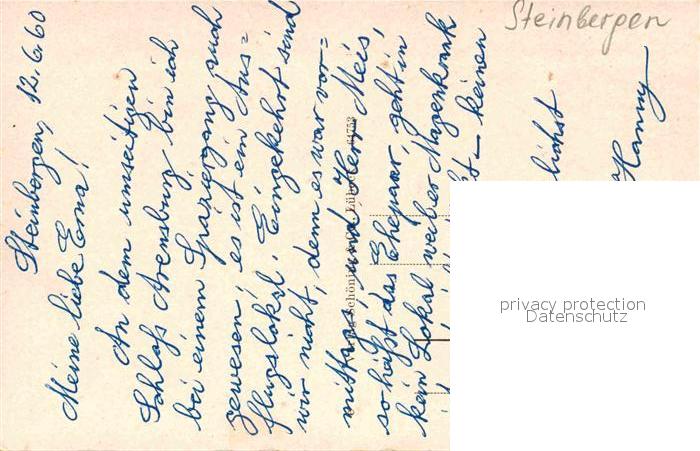 Steinbergen
Steinbergen, 12.6.60
Meine liebe Erna!
An dem umseitigen
Schloß Arensburg bin ich
bei einem Spaziergang auch
gewesen, es ist ein Aus=
flugslokal. Eingekehrt sind
wir nicht, denn es war vor=
mittags, und Herr Meis,
so heißt das Ehepaar, geht in
kein Lokal weil er Magenkrank
keinen
lichst
Hanny
Schöning
Lübeck
privacy protection
Datenschutz